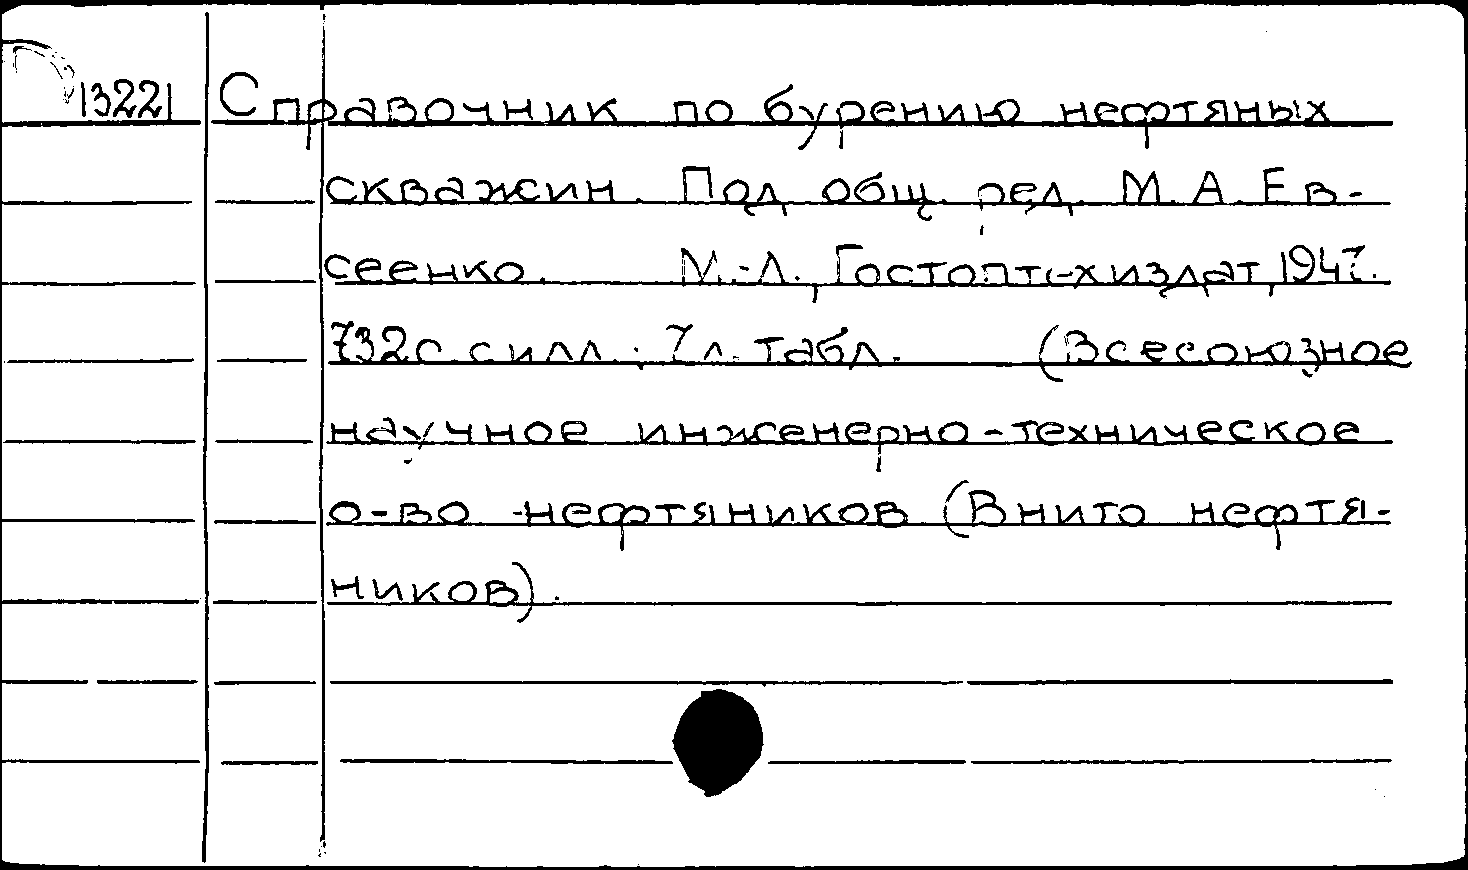 13221 Справочник по бурению нефтяных
скважин. Под общ. ред. М.А.Ев-
сеенко. М.-Л., Гостоптехиздат, 1947.
732с. с илл.; 7 л. табл. (Всесоюзное
научное инженерно-техническое
о-во нефтяников (Внито нефтя-
ников).